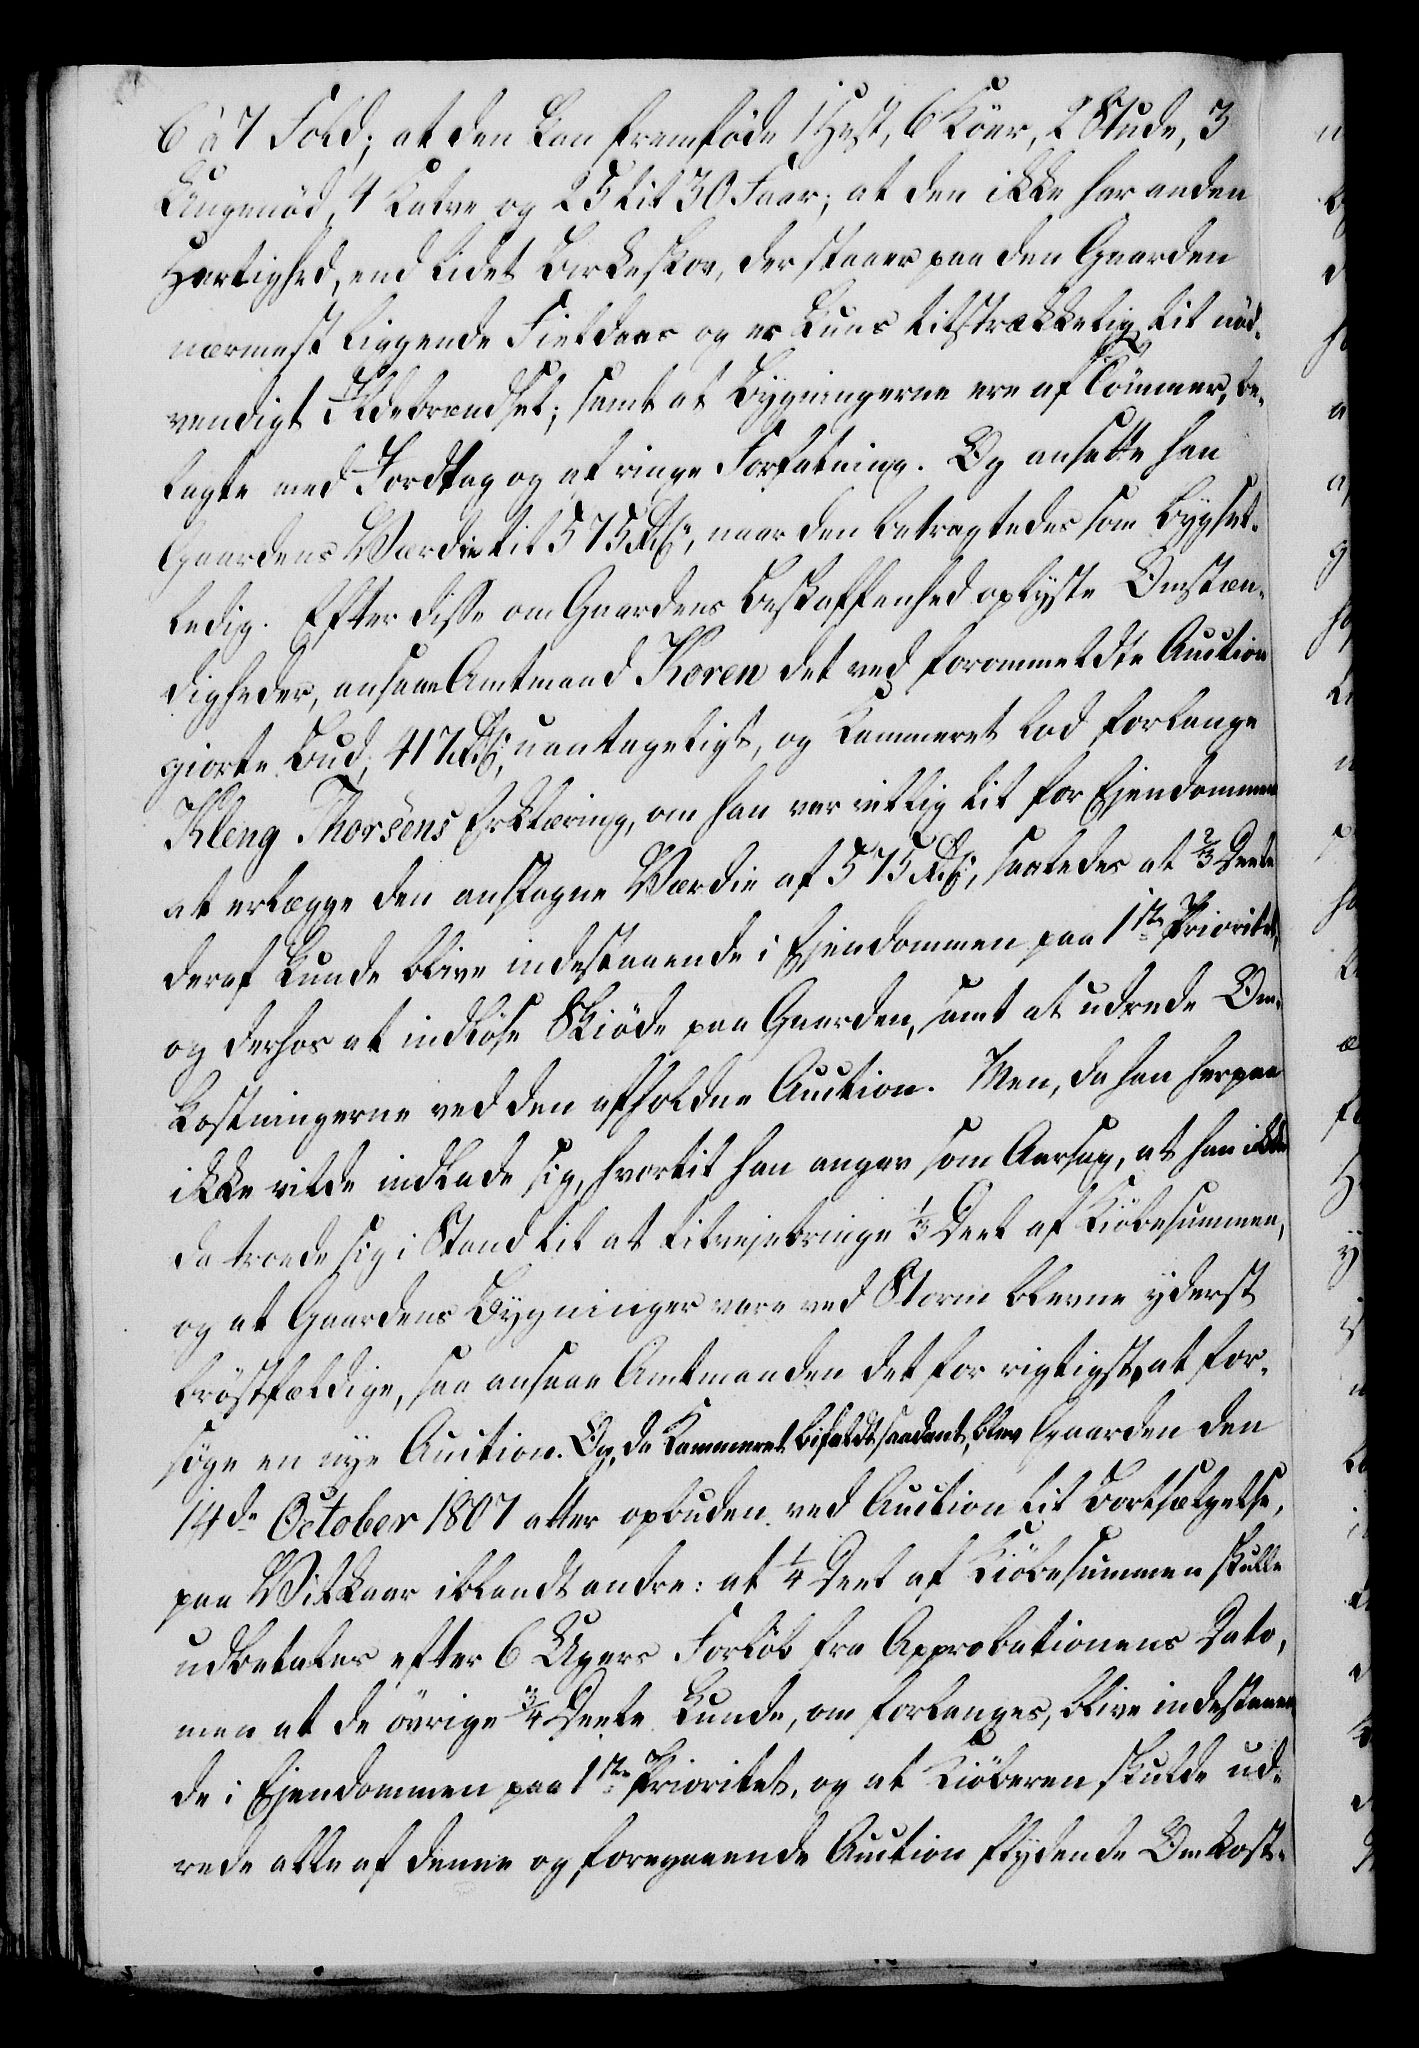 6 à 7 Fold; at den kan fremföde 1 Hest, 6 Köer, 2 Stude, 3
Ungenöd, 4 Kalve og 25 til 30 Faar; at den ikke har anden
Herlighed, end lidet Birkeskov, der staaer paa den Gaarden
nærmest liggende Fieldaas og er kuns tilstrækkelig til nöd-
vendigt Ildebrændsel; samt at Bygningerne ere af Tömmer, be-
lagte med Jordtag og af ringe Forfatning. Og ansatte han
Gaardens Værdie til 575 Rdlr, naar den betragtedes som bygsel-
ledig. Efter disse om Gaardens Beskaffenhed oplyste Omstæn-
digheder, ansaae Amtmand Koren det ved forommeldte Auction
giorte Bud, 417 Rdlr, uantageligt, og Kammeret lod forlange
Kleng Thorsens Erklæring, om han var villig til for Ejendommen
at erlægge den ansatte Værdie af 575 Rdlr, saaledes at 2/3 Deele
deraf kunde blive indestaaende i Ejendommen paa 1ste Prioritet,
og derhos at indlöse Skiöde paa Gaarden, samt at udrede Om-
kostningerne ved den afholdne Auction. Men, da han herpaa
ikke vilde indlade sig, hvortil han angav som Aarsag, at han ikke
da troede sig i Stand til at tilvejebringe 1/3 Deel af Kiöbesummen,
og at Gaardens Bygninger vare ved Storm blevne yderst
bröstfældige, saa ansaae Amtmanden det for rigtigst, at for-
söge en nye Auction. Og, da Kammeret bifaldt saadant, blev Gaarden den
14de October 1807 atter opbuden ved Auction til Bortsælgelse,
paa Vilkaar iblandt andre: at 1/4 Deel af Kiöbesummen skulle
udbetales efter 6 Ugers Forlöb fra Approbationens Dato,
men at de övrige 3/4 Deele kunde, om forlanges, blive indestaaen-
de i Ejendommen paa 1ste Prioritet, og at Kiöberen skulde ud-
rede alle af denne og foregaaende Auction flydende Omkost-